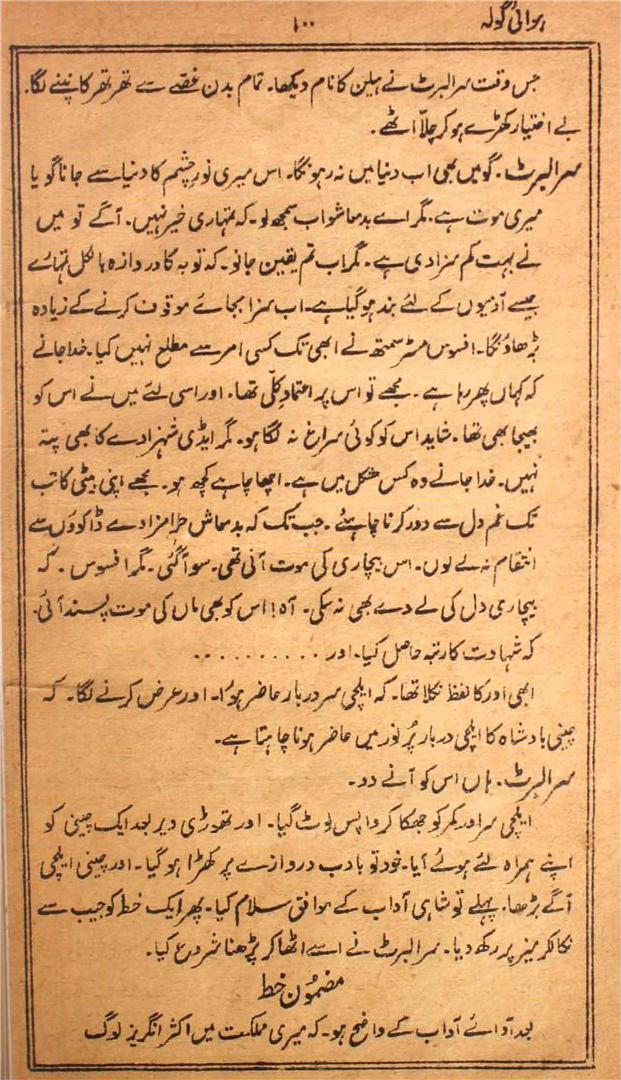 ہوائی گولہ
۱۰۰
جس وقت سر البرٹ نے ہیلن کا نام دیکھا۔ تمام بدن غصے سے تھر تھر کانپنے لگا۔
بے اختیار کھڑے ہو کر چلّا اٹھے۔
سر البرٹ۔ گو میں بھی اب دنیا میں نہ رہونگا۔ اس میری نور چشم کا دنیا سے جانا گویا
میری موت ہے۔ مگر اے بدمعاشو اب سمجھ لو۔ کہ تمہاری خیر نہیں۔ آگے تو میں
نے بہت کم سزا دی ہے۔ مگر اب تم یقین جانو۔ کہ توبہ کا دروازہ بالکل تمہارے
جیسے آدمیوں کے لئے بند ہو گیا ہے۔ اب سزا بجائے موقوف کرنے کے زیادہ
بڑھاؤنگا۔ افسوس مسٹر سمتھ نے ابھی تک کسی امر سے مطلع نہیں کیا۔ خدا جانے
کہ کہاں پھر رہا ہے۔ مجھے تو اس پر اعتماد کلّی تھا۔ اور اسی لئے میں نے اس کو
بھیجا بھی تھا۔ شاید اس کو کوئی سراغ نہ لگا ہو۔ مگر ایڈی شہزادے کا بھی پتہ
نہیں۔ خدا جانے وہ کس شکل میں ہے۔ اچھا چاہے کچھ ہو۔ مجھے اپنی بیٹی کا تب
تک غم دل سے دور کرنا چاہئے۔ جب تک کہ بدمعاش حرامزادے ڈاکوؤں سے
انتقام نہ لے لوں۔ اس بیچاری کی موت آنی تھی۔ سو آ گئی۔ مگر افسوس۔ کہ
بیچاری دل کی لے دے بھی نہ سکی۔ آہ! اس کو بھی ماں کی موت پسند آئی۔
کہ شہادت کا رتبہ حاصل کیا۔ اور ..........
ابھی اور کا لفظ نکلا تھا۔ کہ ایلچی سر دربار حاضر ہوا۔ اور عرض کرنے لگا۔ کہ
چینی بادشاہ کا ایلچی دربار پُر نور میں حاضر ہونا چاہتا ہے۔
سر البرٹ۔ ہاں اس کو آنے دو۔
ایلچی سر اور کمر کو جھکا کر واپس لوٹ گیا۔ اور تھوڑی دیر بعد ایک چینی کو
اپنے ہمراہ لئے ہوئے آیا۔ خود تو با ادب دروازے پر کھڑا ہو گیا۔ اور چینی ایلچی
آگے بڑھا۔ پہلے تو شاہی آداب کے موافق سلام کیا۔ پھر ایک خط کو جیب سے
نکال کر میز پر رکھ دیا۔ سر البرٹ نے اسے اٹھا کر پڑھنا شروع کیا۔
مضمُون خط
بعد آوائے آداب کے واضح ہو۔ کہ میری مملکت میں اکثر انگریز لوگ